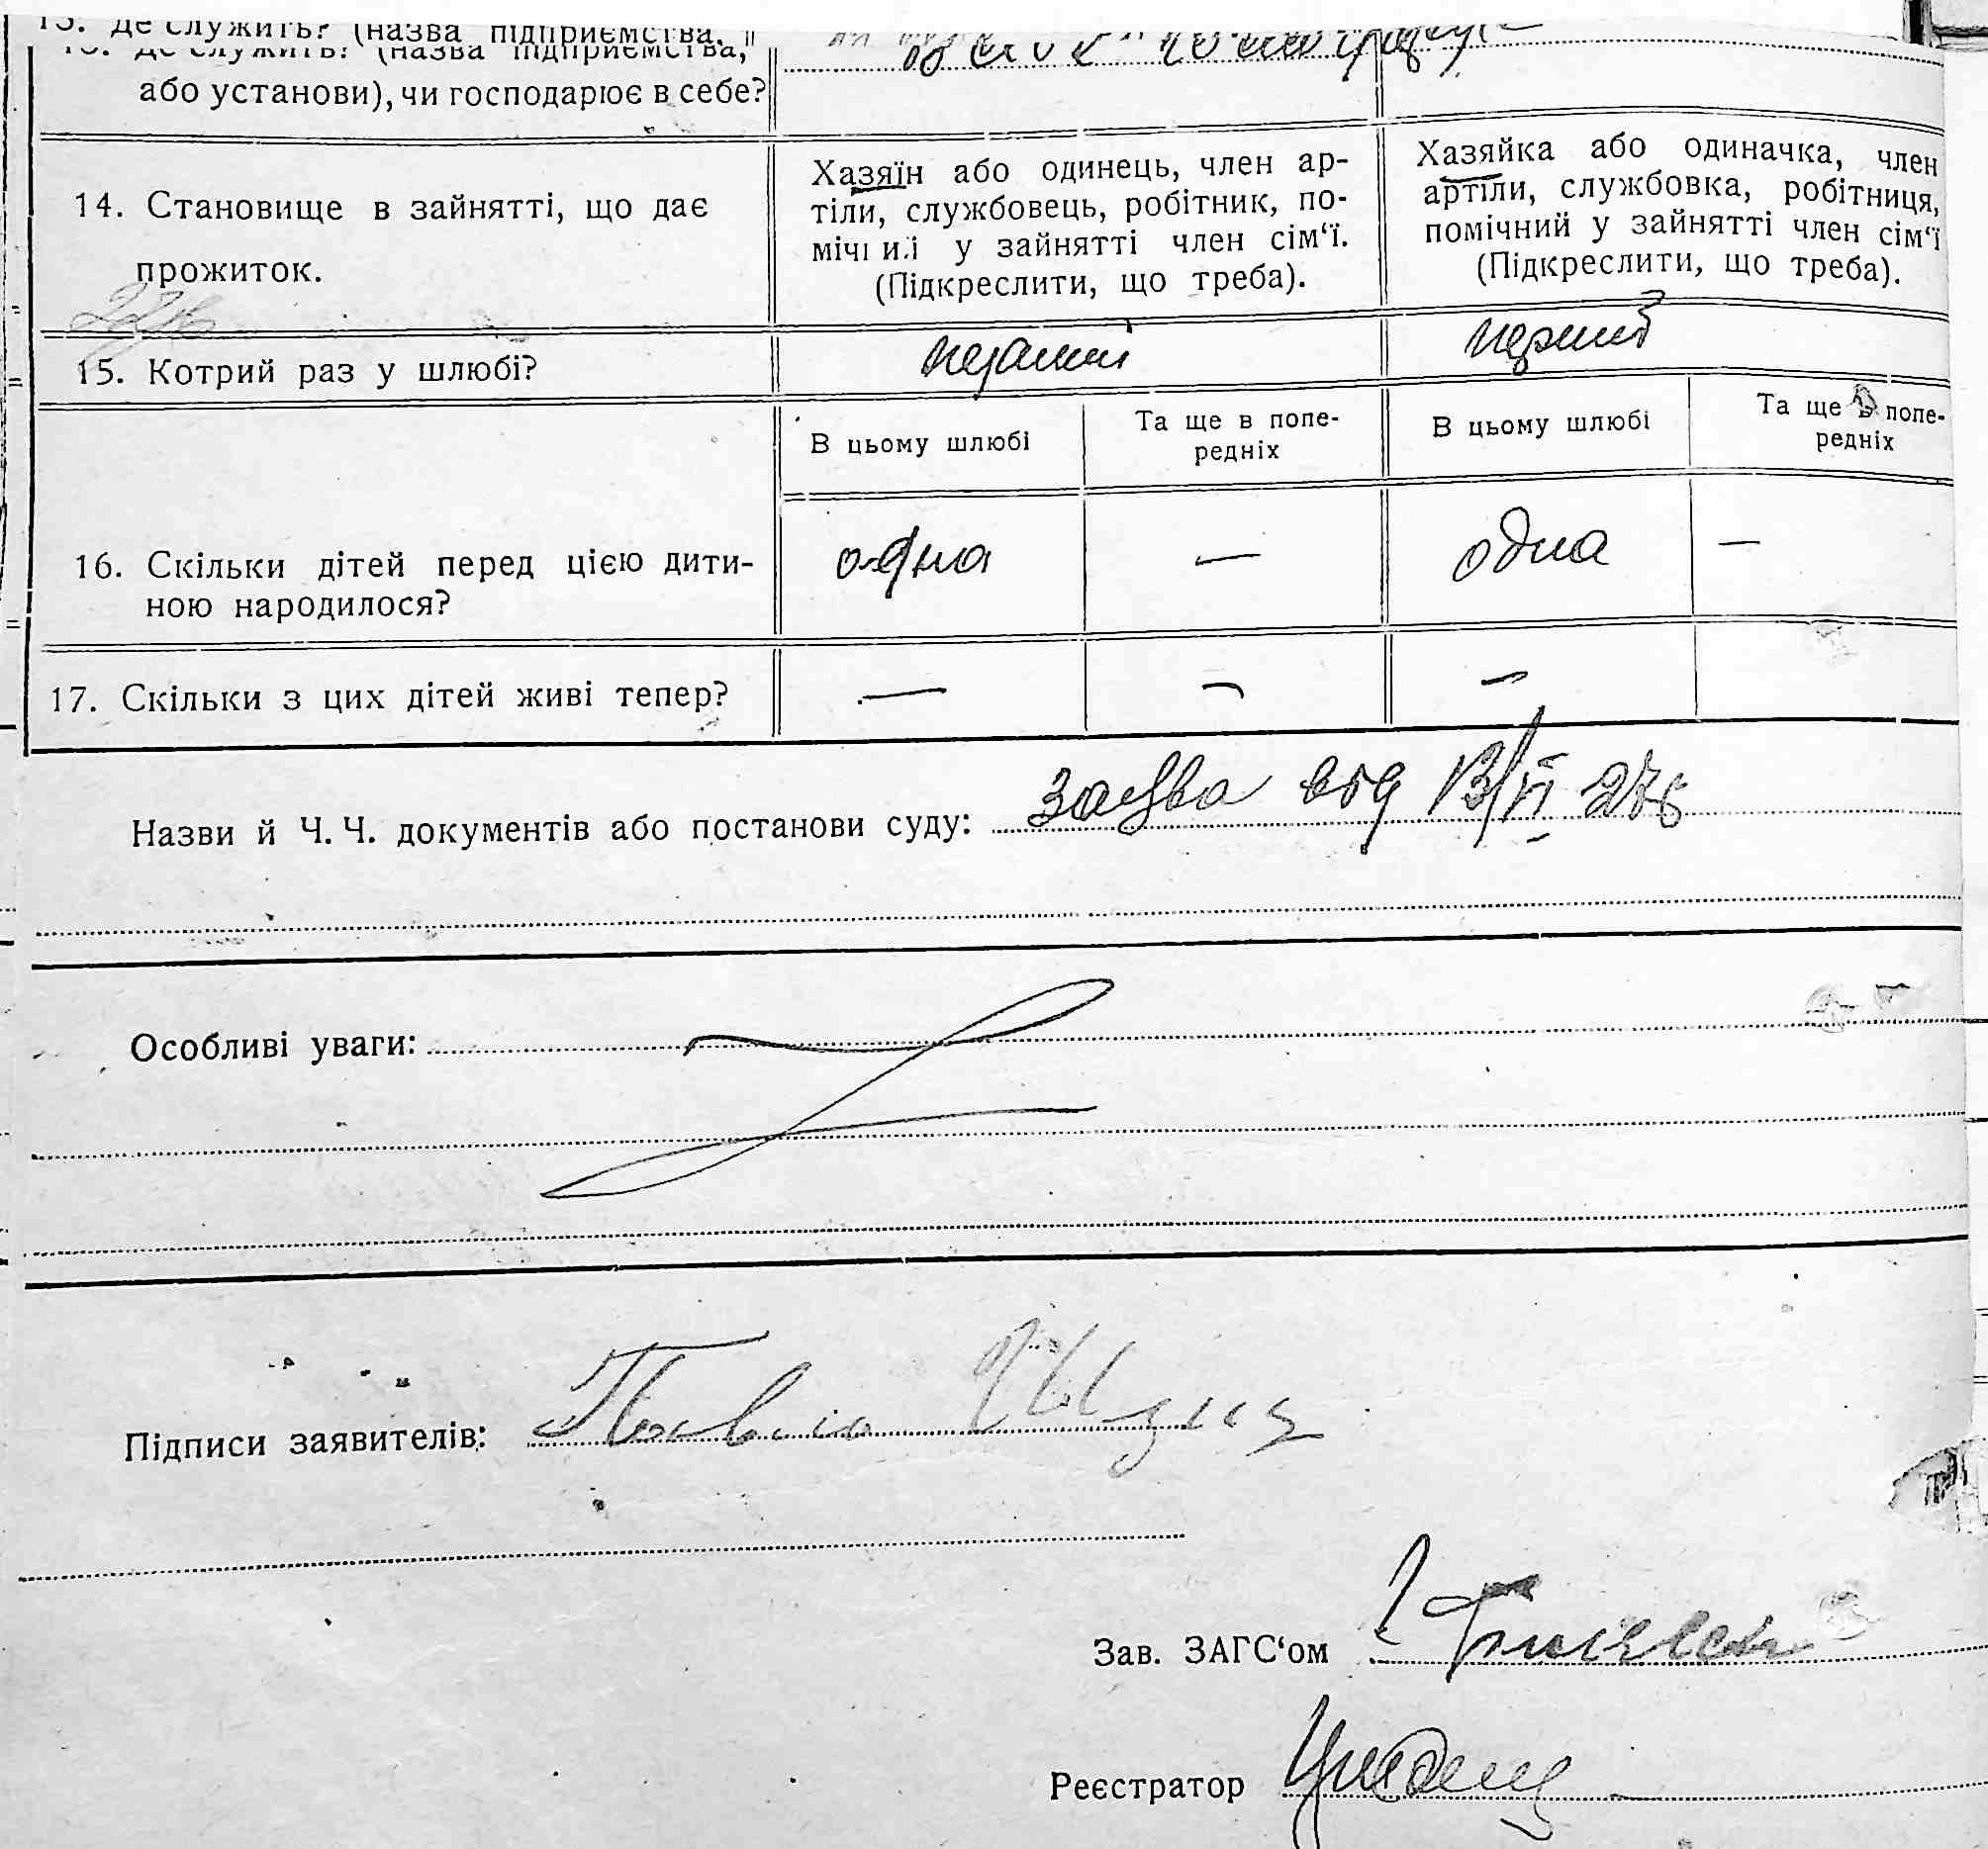 13. Де служить? (назва підприємства,
або установи), чи господарює в себе?
14. Становище в зайнятті, що дає
прожиток.
Хазяїн або одинець, член ар-
тіли, службовець, робітник, по-
мічний у зайнятті член сім‘ї.
(Підкреслити, що треба).
Хазяйка або одиначка, член
артіли, службовка, робітниця,
помічний у зайнятті член сім‘ї
(Підкреслити, що треба).
15. Котрий раз у шлюбі?
перший
В цьому шлюбі
Та ще в попе-
редніх
В цьому шлюбі
Та ще в попе-
редніх
16. Скільки дітей перед цією дити-
ною народилося?
одна
—
одна
—
17. Скільки з цих дітей живі тепер?
—
—
—
Назви й Ч. Ч. документів або постанови суду: заява від 13/VI 27р
Особливі уваги:
Підписи заявителів: Павло
Зав. ЗАГС‘ом
Реєстратор